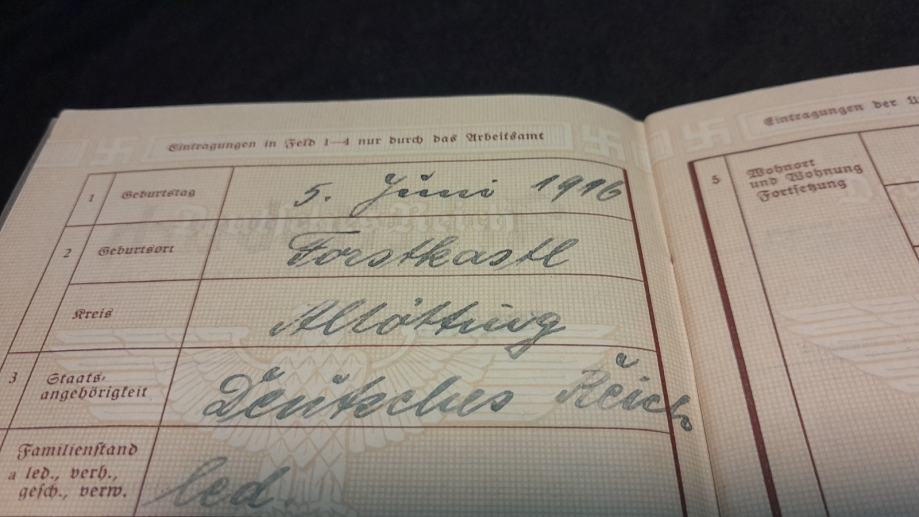 Eintragungen in Feld 1—4 nur durch das Arbeitsamt
1 Geburtstag 5. Juni 1916
2 Geburtsort Forstkastl
Kreis Altötting
3 Staats-
angehörigkeit Deutsches Reich
Familienstand
a led., verh.,
gesch., verw. led.
Eintragungen der
5 Wohnort
und Wohnung
Fortsetzung